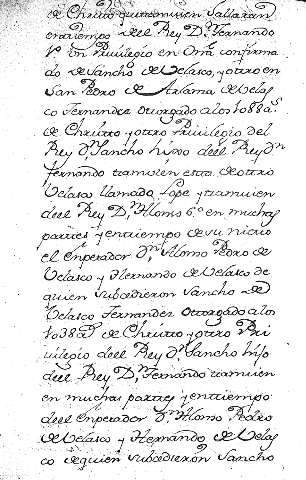 de Christo quetamuien sallaran
enetiempo deel Rey Dⁿ. Fernando
1º Un Priuilegio en Orig. confirma
do de Sancho de Velasco, y otro en
San Pedro de Arlansa de Velas
co Fernandez otorgado alos 1088 aˢ
de Christo y otro Priuilegio del
Rey dⁿ. Sancho hijo deel Rey dⁿ
fernando tamuien esta de otro
Velasco llamado Lope y tamuien
deel Rey Dⁿ. Alonso 6º en muchas
partes y entiempo de su nieto
el Enperador dⁿ. Alonso Pedro de
Velasco y Hernando de Velasco de
quien subcedieron Sancho de
Velasco Fernandez otorgado alos
1038 aˢ de Christo y otro Pri
uilegio deel Rey dⁿ. Sancho hijo
deel Rey Dⁿ. Fernando tamuien
en muchas partes y entiempo
deel enperador dⁿ Alonso Pedro
de Velasco y Hernando de Velas
co de quien subcedieron Sancho